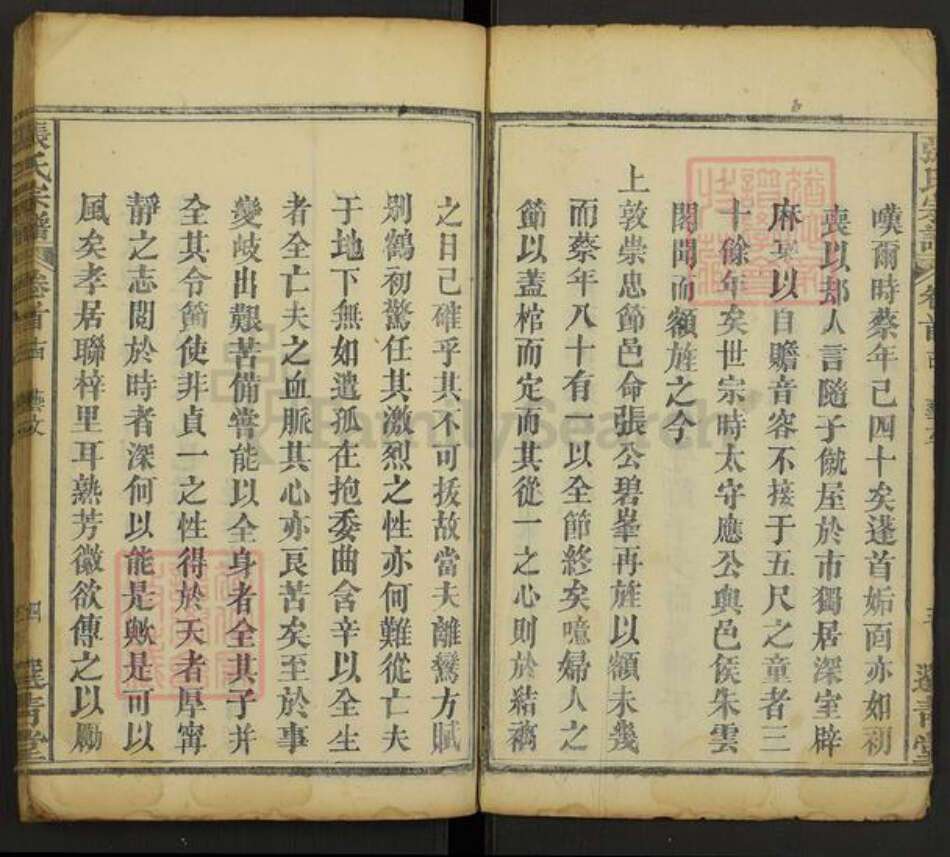 嘆爾時蔡年已四十矣逢首垢面亦如初
喪以却人言隨子僦屋於市獨居深室辟
麻寡以自贍音容不接于五尺之童者三
十餘年矣世宗時太守應公與邑侯朱雲
閣聞而額旌之今
上敦崇忠節邑命張公碧峯再旌以額未幾
而蔡年八十有一以全節終矣噫婦人之
節以蓋棺而定而其從一之心則於結褵
之日已確乎其不可拔故當夫離鸞方賦
別鶴初驚任其激烈之性亦何難從亡夫
于地下無如遺孤在抱委曲含辛以全生
者全亡夫之血脈其心亦良苦矣至於事
變歧出艱苦備嘗能以全身者全其子并
全其令節使非貞一之性得於天者厚甯
靜之志閱於時者深何以能是歟是可以
風矣孝居聯梓里耳熟芳徽欲傳之以勵
張氏宗譜
卷首
藝文
四
選青堂
FamilySearch